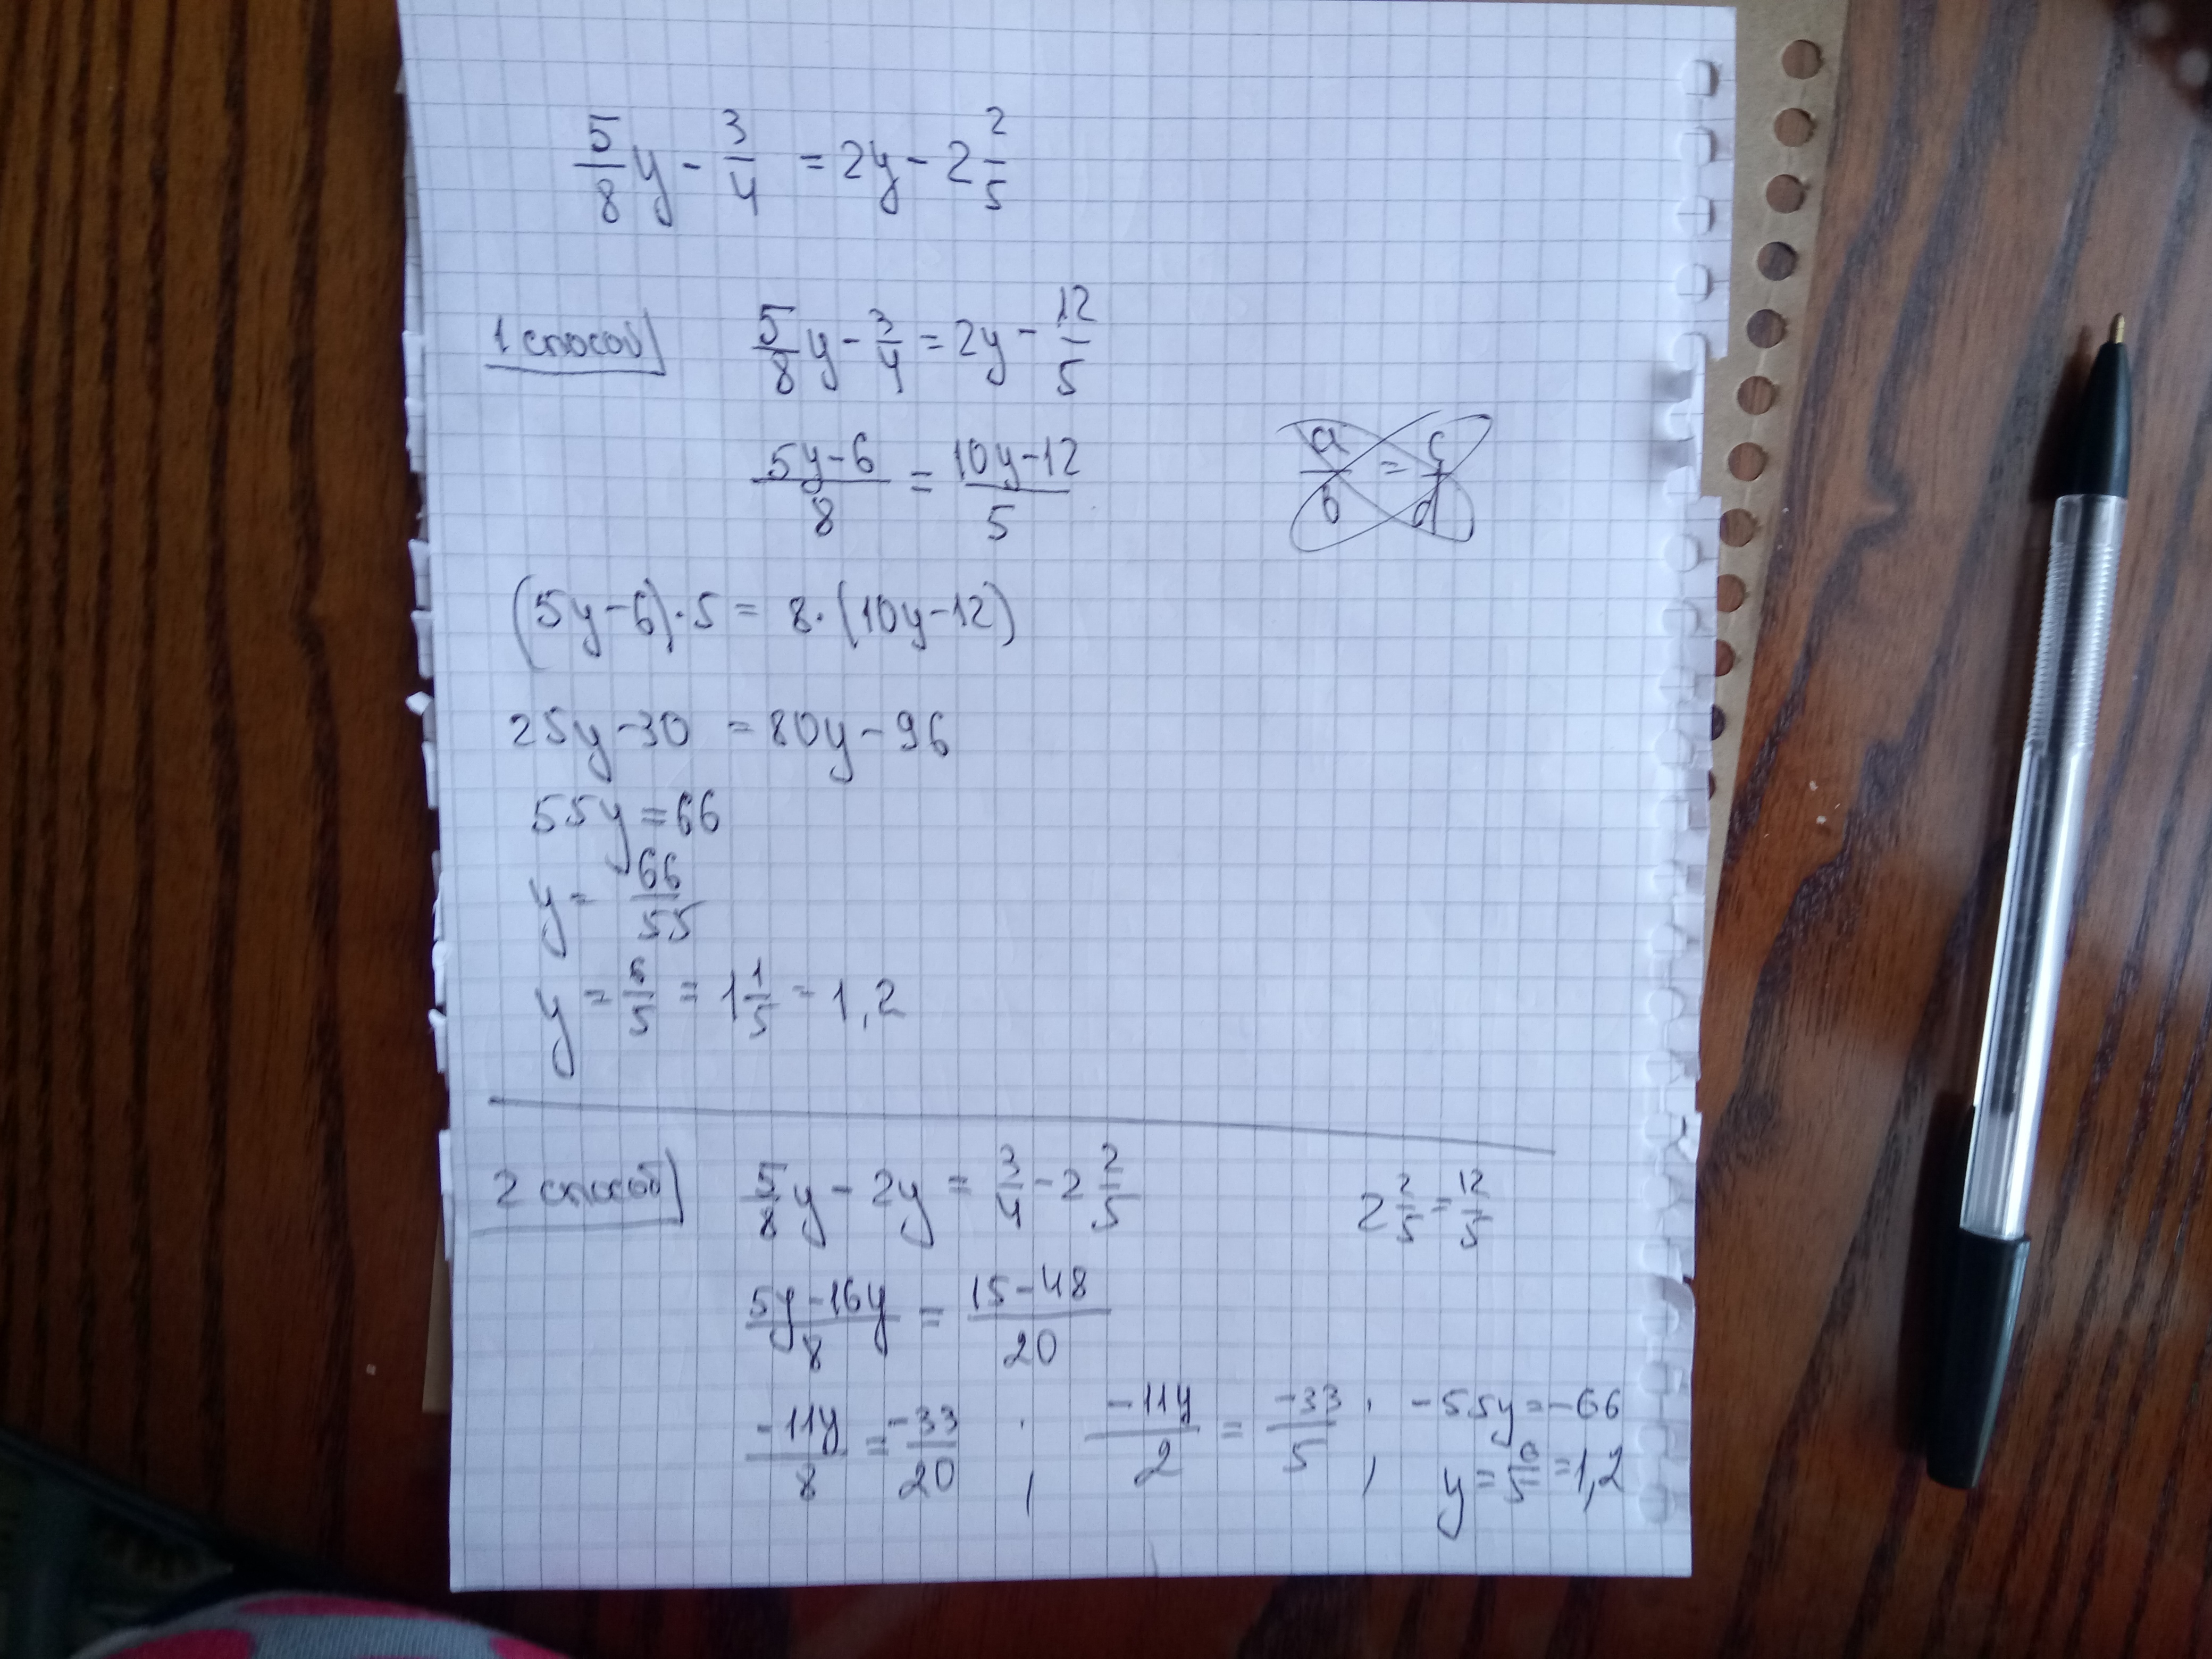 5/8 y - 3/4 = 2y - 2 2/5
1 способ 5/8 y - 3/4 = 2y - 12/5
(5y-6)/8 = (10y-12)/5 a/b = c/d
(5y-6)·5 = 8·(10y-12)
25y-30 = 80y-96
55y = 66
y = 66/55
y = 6/5 = 1 1/5 = 1,2
2 способ 5/8 y - 2y = 3/4 - 2 2/5 2 2/5 = 12/5
(5y-16y)/8 = (15-48)/20
-11y/8 = -33/20 ; -11y/2 = -33/5 ; -55y = -66
y = 6/5 = 1,2